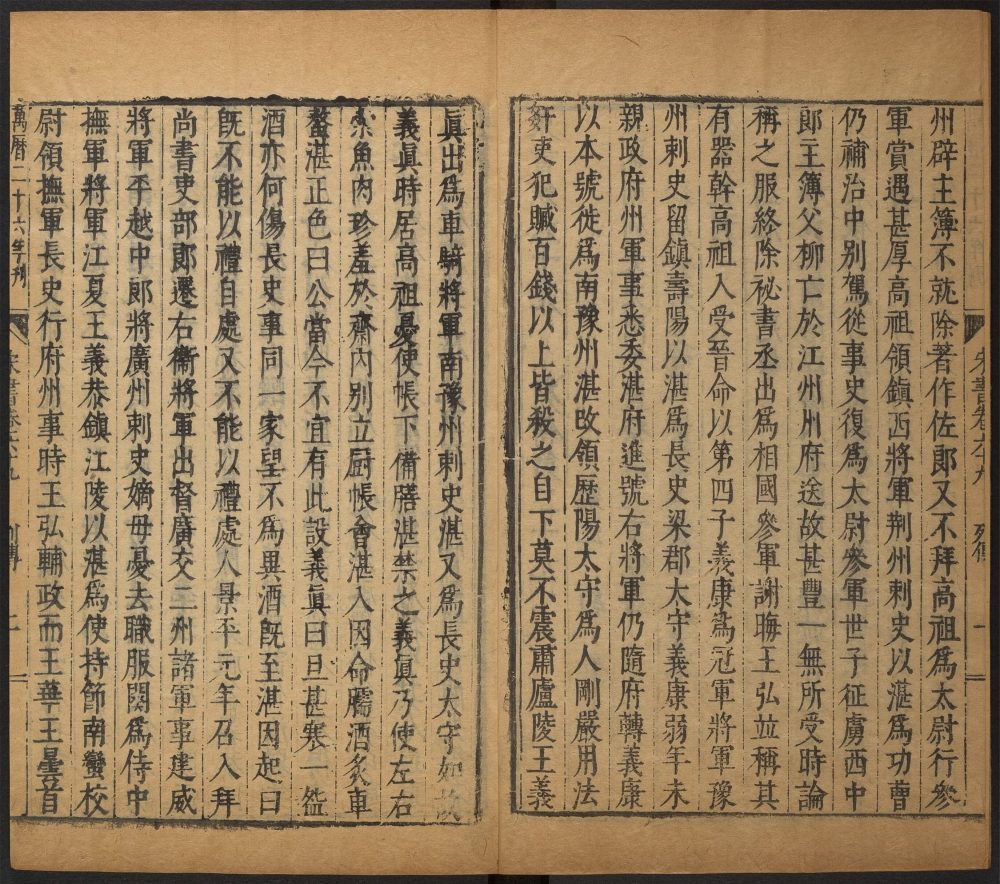 州辟主簿不就除著作佐郎又不拜高祖爲太尉行參
軍賞遇甚厚高祖領鎮西將軍荆州刺史以湛爲功曹
仍補治中别駕從事史復爲太尉參軍世子征虜西中
郎主簿父柳亡於江州州府送故甚豐一無所受時論
稱之服終除祕書丞出爲相國參軍謝晦王弘並稱其
有器幹高祖入受晉命以第四子義康爲冠軍將軍豫
州刺史留鎮壽陽以湛爲長史梁郡大守義康弱年未
親政府州軍事悉委湛府進號右將軍仍隨府轉義康
以本號徙爲南豫州湛改領歷陽太守爲人剛嚴用法
姧吏犯贓百錢以上皆殺之自下莫不震肅廬陵王義
宋書卷六十九 列傳 一
眞出爲車騎將軍南豫州刺史湛又爲長史太守如故
義眞時居高祖憂使帳下備膳湛禁之義眞乃使左右
索魚肉珍羞於齋内别立厨帳會湛入因命臑酒炙車
螯湛正色曰公當今不宜有此設義眞曰旦甚寒一盌
酒亦何傷長史事同一家望不爲異酒旣至湛因起曰
旣不能以禮自處又不能以禮處人景平元年召入拜
尚書吏部郎遷右衞將軍出督廣交二州諸軍事建威
將軍平越中郎將廣州刺史嫡母憂去職服闋爲侍中
撫軍將軍江夏王義恭鎮江陵以湛爲使持節南蠻校
尉領撫軍長史行府州事時王弘輔政而王華王曇首
萬曆二十六年刊
宋書卷六十九 列傳 二